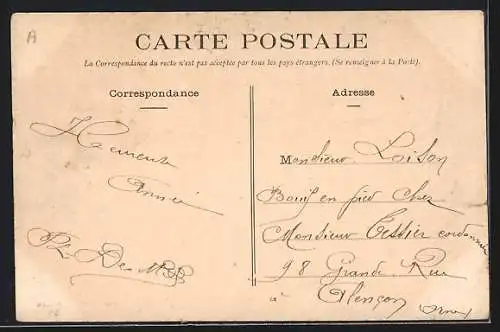 A
CARTE POSTALE
La Correspondance du recto n'est pas acceptée par tous les pays étrangers. (Se renseigner à la Poste).
Correspondance
Adresse
Année
Monsieur Loison
Bouif en pied chez
Monsieur Tessier cordonnier
98 Grande Rue
Alençon
Orne